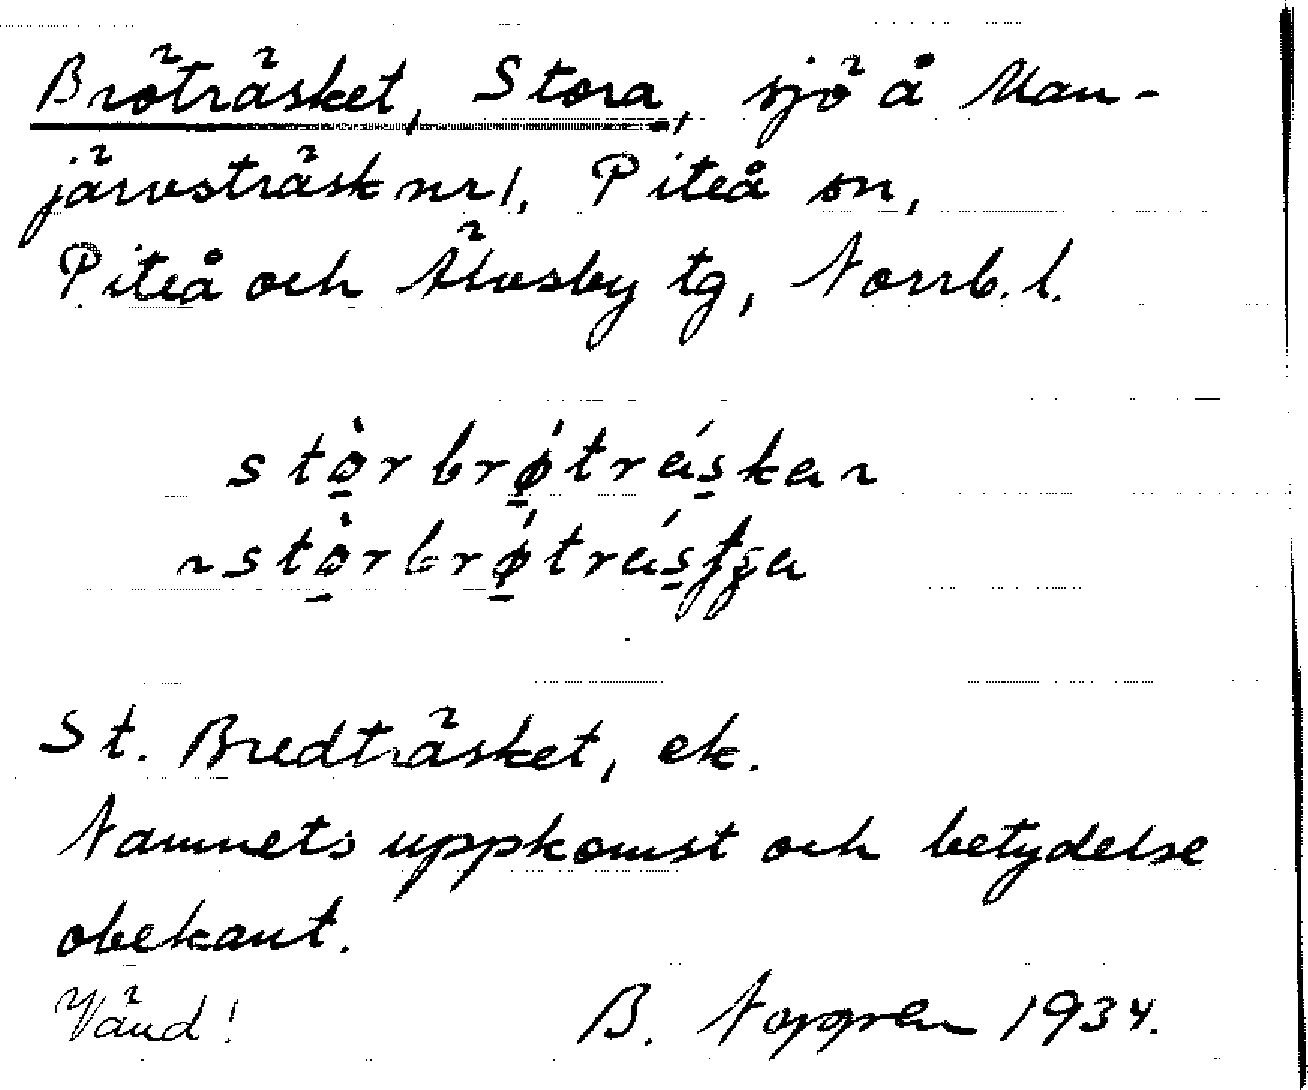 Bröträsket, Stora, sjö å Man-
järvsträsk nr 1, Piteå sn,
Piteå och Älvsby tg, Norrb. l.
stò̱rbrǿ̱tráska ~
~ stò̱rbrǿ̱trás
St. Bredträsket, ek.
Namnets uppkomst och betydelse
obekant.
Vänd!
B. Noppren 1934.